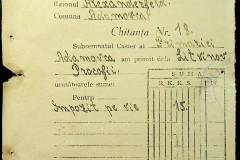 Raionul Alexanderfeld
Comuna Adamovca
Chitanța Nr. 18.
Subsemnatul Casier al Primăriei
Adamovca am primit dela Litvinov
Procofii
următoarele sume:
SUMA
R.K.K.S.
Pentru
Impozit pe vie 15.